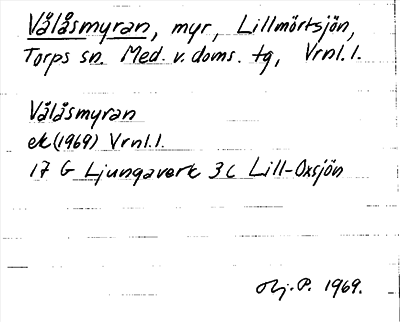 Vålåsmyran, myr, Lillmörtsjön,
Torps sn. Med. v. doms. tg, Vrnl. l.
Vålåsmyran
ek (1969) Vrnl. l.
17 G Ljungaverk 3 c Lill-Oxsjön
P. 1969.